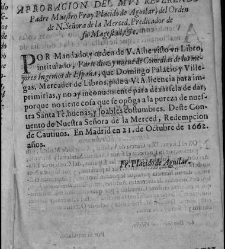 APROBACION DEL MVY REVERENDO
Padre Maestro Fray Placido de Aguilar, del Orden
de N. Señora de la Merced, Predicador de
su Magestad, &c.
POR Mandado, y orden de V. A. he visto un Libro,
intitulado, Parte diez y nueve de Comedias de los me-
jores Ingenios de España, que Domingo Palacio y Ville-
gas, Mercader de Libros, pide a V. A. licencia para im-
primirlas, y no ay inconueniente para dexarsela de dar,
porque no tiene cosa que se oponga a la pureza de nuestra
Santa Fè, buenas, y loables costumbres. Deste Con-
uento de Nuestra Señora de la Merced, Redempcion
de Cautiuos. En Madrid en 21. de Octubre de 1662.
años.
Fr. Placido de Aguilar.